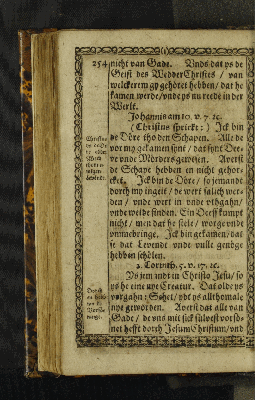 254 nicht van Gade. Unds dat ys de
Geist des WedderChristes / van
welckerem gy gehöret hebben / dat he
kamen werde / unde ys nu rede in der
Werlt.
Johannis am 10. v. 7. ꝛc.
(Christus sprickt:) Jck bin
de Döre tho den Schapen. Alle de
vor my gekamen synt / dat synt Deef-
ve unde Mörders gewesen. Averst
de Schape hebben en nicht gehor-
cket. Jck bin de Döre / so jemande
dorch my ingeit / de wert salich wer-
den / unde wert in unde uthgahn /
unde weide finden. Ein Deeff kumpt
nicht / men dat he stele / worge unde
ummebringe. Jck bin gekamen / dat
se dat Levende unde vulle genöge
hebben schölen.
2. Corinth. 5. v. 17. ꝛc.
Ys jem andt in Christo Jesu / so
ys he eine nye Creatur. Dat olde ys
vorgahn: Sehet / ydt ys allthomale
nye geworden. Averst dat alle van
Gade / de uns mit sick sülvest vorsö-
net hefft dorch Jesum Christum / und